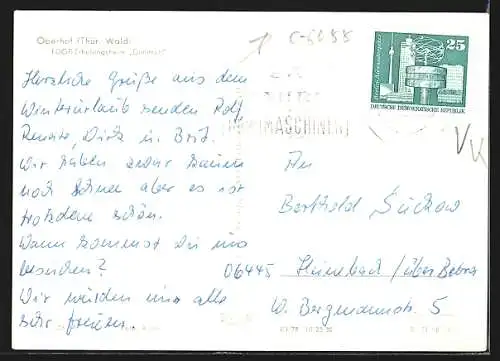 Oberhof (Thür. Wald)
FDGB-Erholungsheim
C-6055
25
DEUTSCHE DEMOKRATISCHE REPUBLIK
MASCHINEN
VK
Herzliche Grüße aus dem
Winterurlaub senden Rolf
Renate, Dirk u. Brit.
Wir haben zwar kaum
noch Schnee aber es ist
trotzdem schön.
Wann kommst du uns
besuchen?
Wir würden uns alle
sehr freuen.
An
Berthold Suckow
06445 / über Bebra
W. Bergmannstr. 5